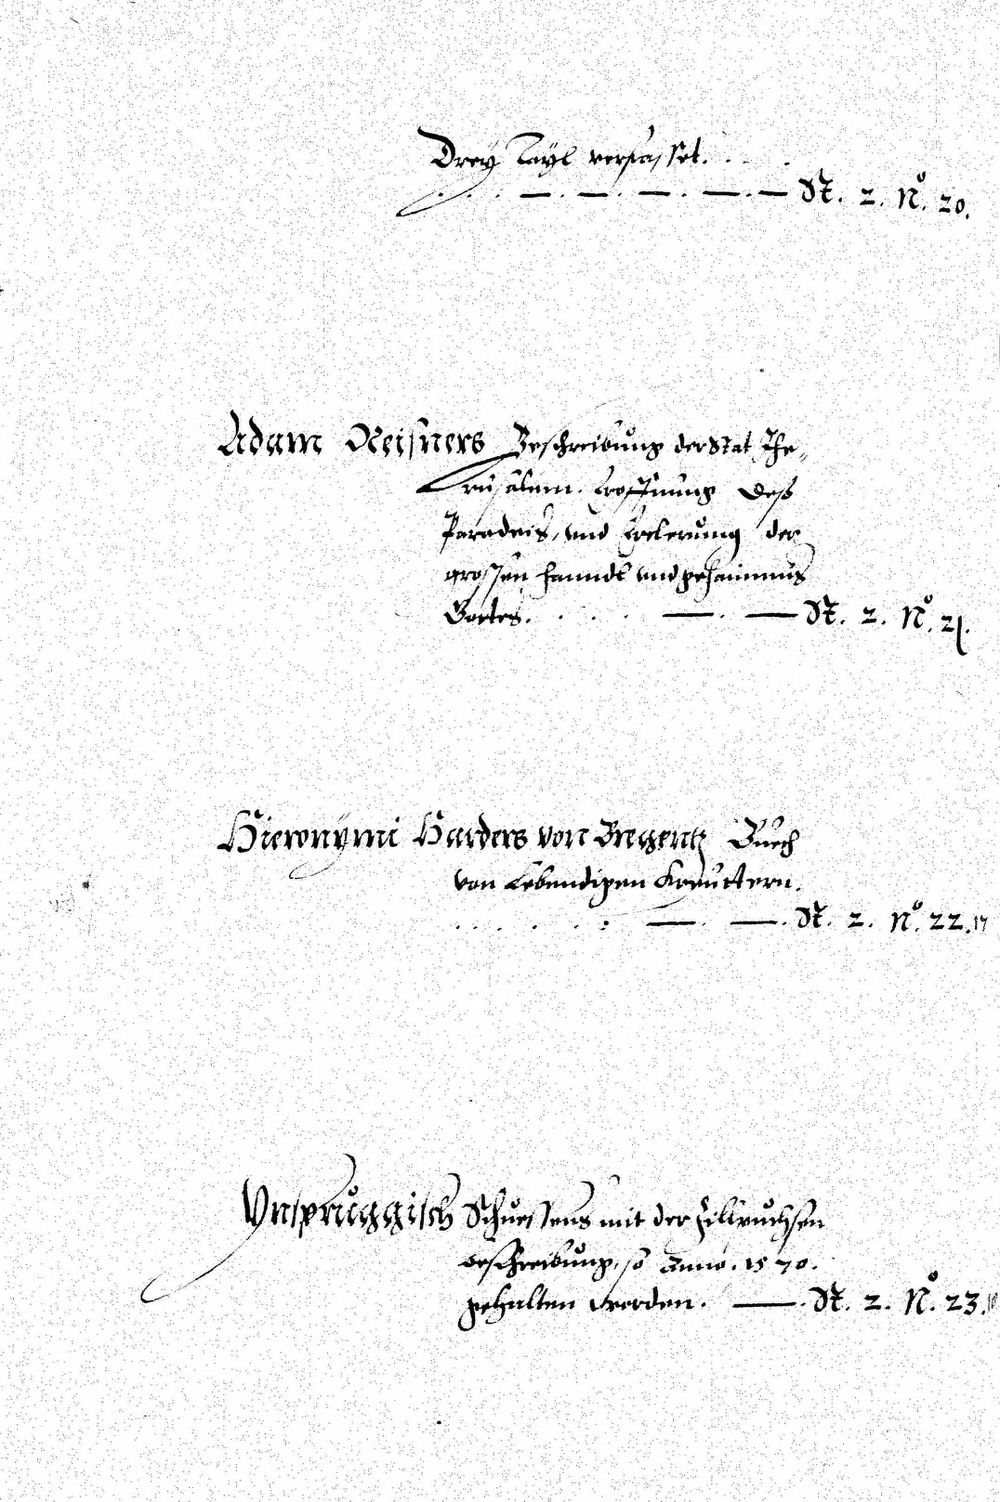 Drey Tayl verfasset.
St. 2. No. 20.
Adam Reisners Beschreibung der Stat Jhe-
rusalem. Eroffnung deß
Paradeis, und Erclerung der
grossen handt und gehaimnus
Gottes. St. 2. No. 21.
Hieronymi Harders von Bregentz Buech
von Lebendigen Kreuttern.
St. 2. No. 22. 17
Ynspruggisch Schuessens mit der Zillpuchsen
beschreibung, so Anno. 1570.
gehalten worden. St. 2. No. 23.